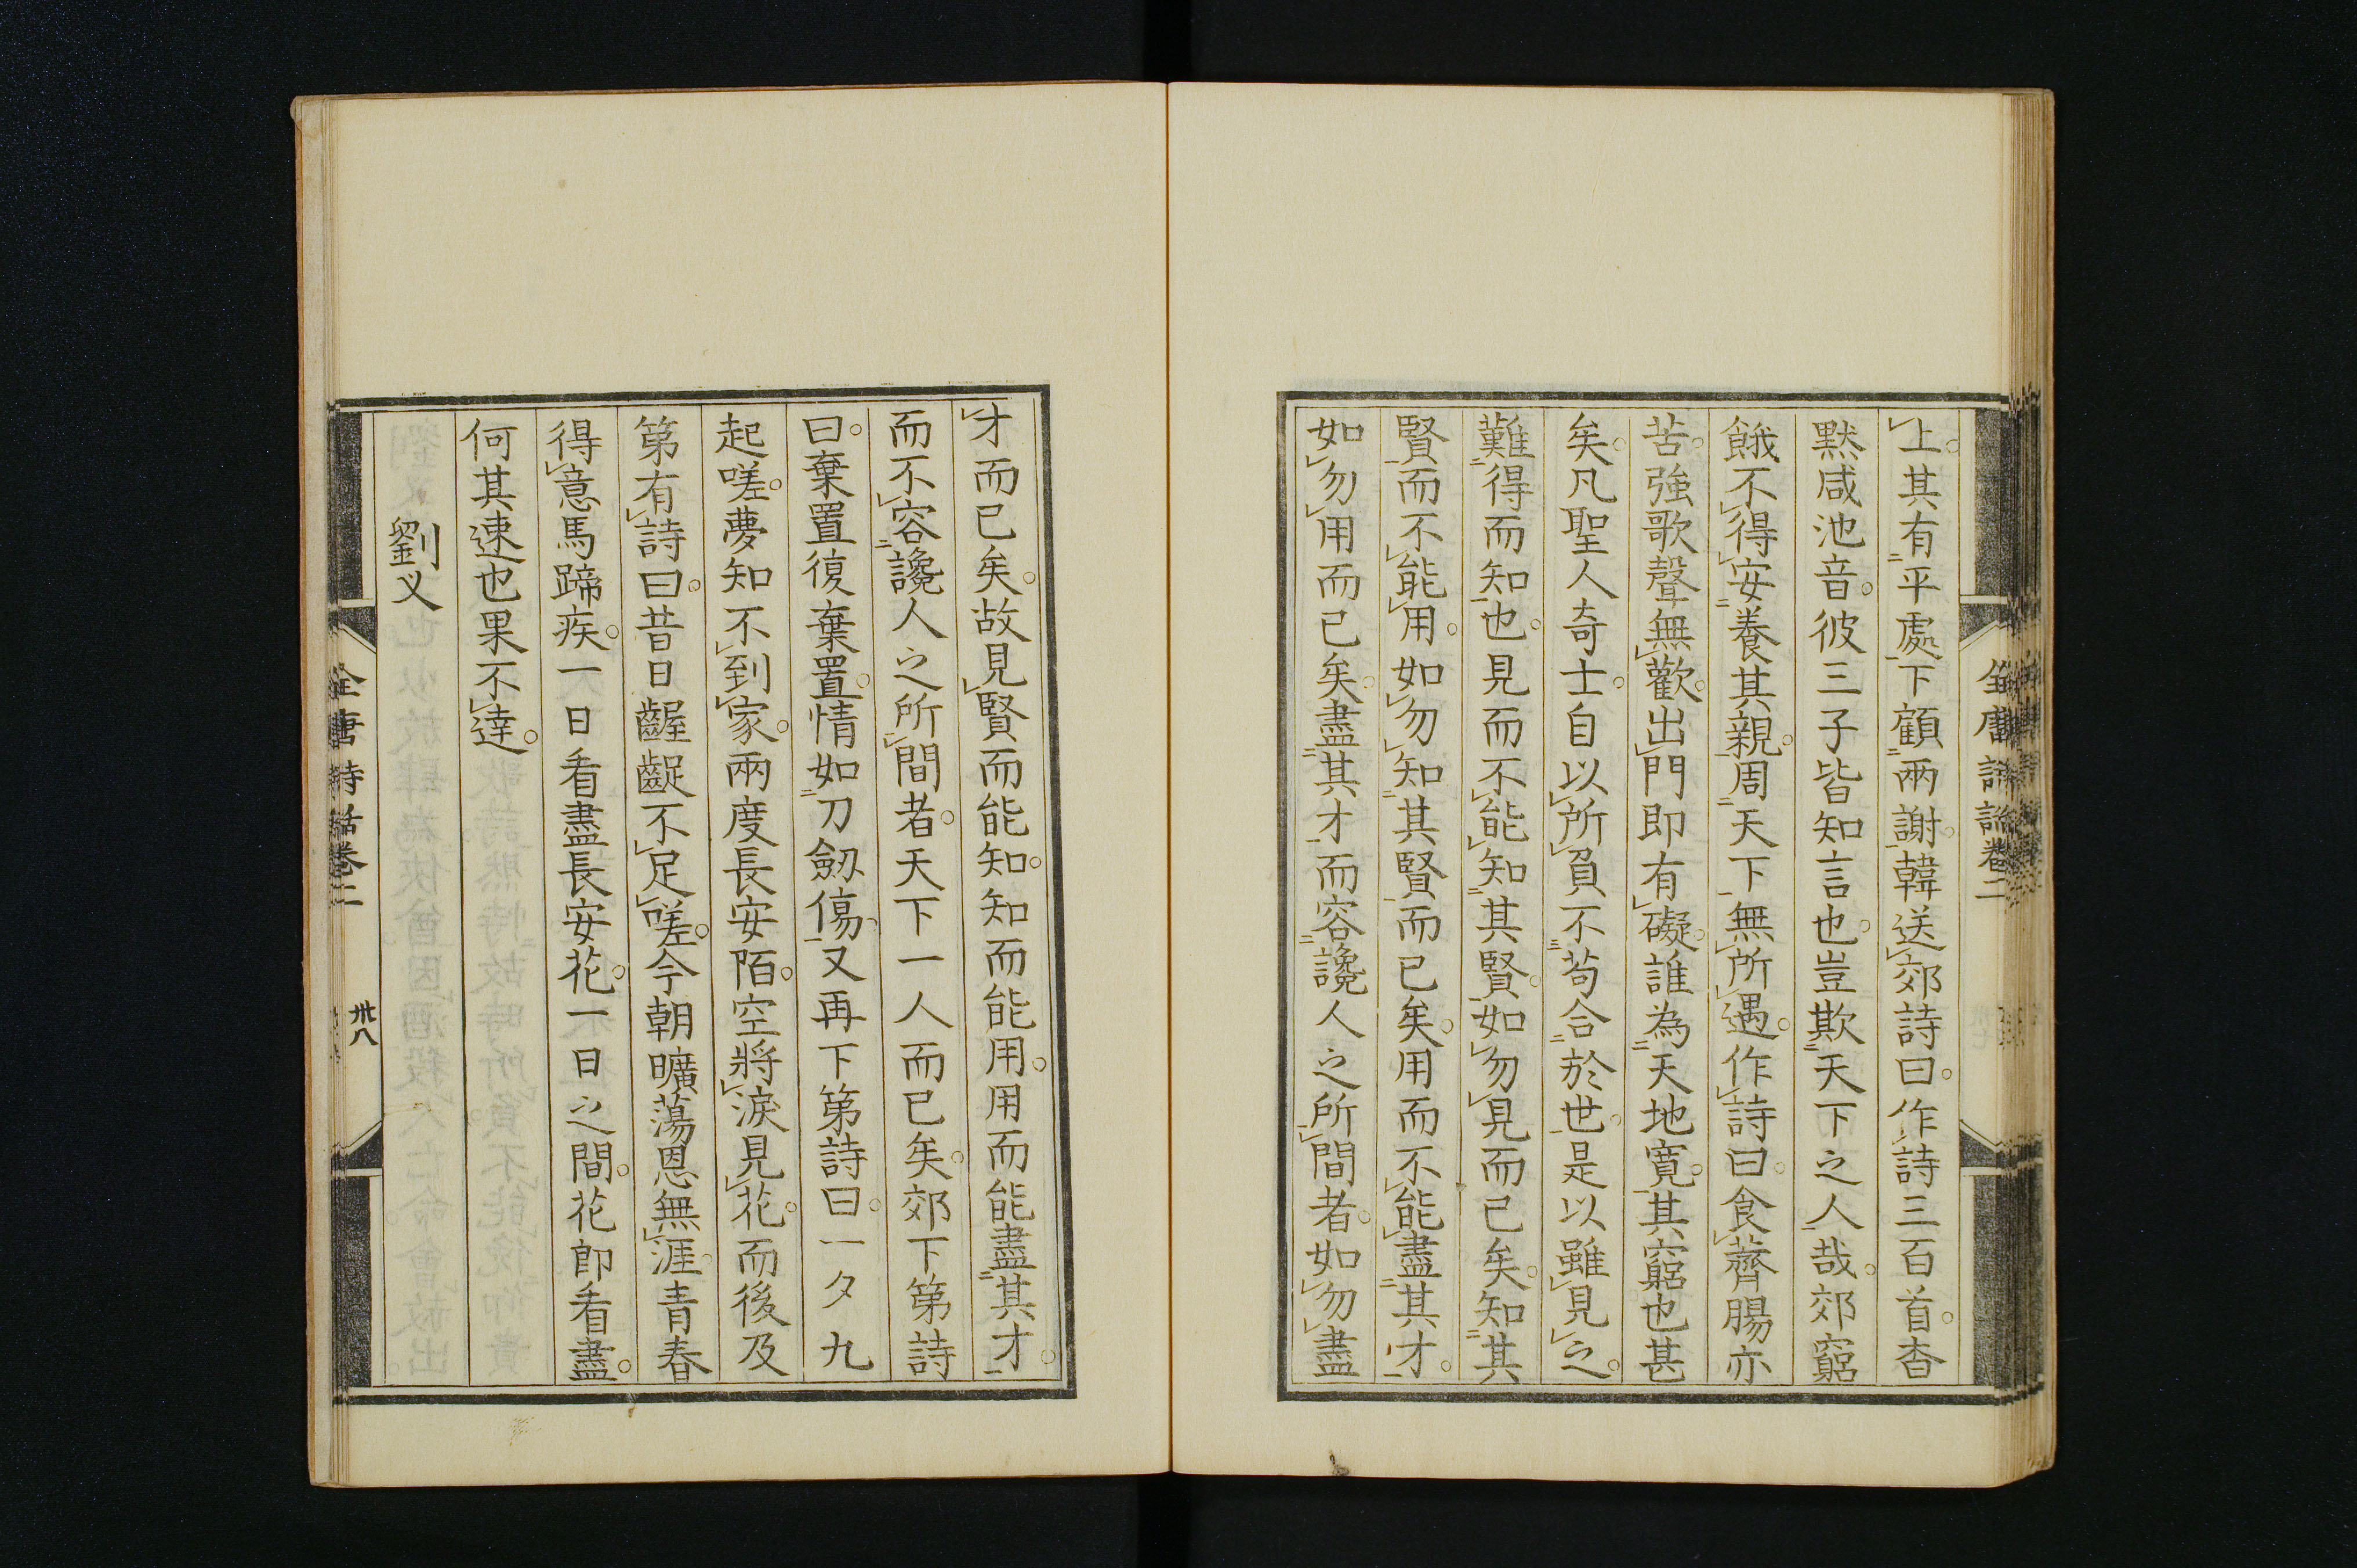 全唐詩話卷二
上。其有平處下顧兩謝。韓送郊詩曰。作詩三百首。杳
黙咸池音。彼三子皆知言也。豈欺天下之人哉。郊窮
餓不得安養其親。周天下無所遇。作詩曰。食薺腸亦
苦。強歌聲無歡。出門即有礙。誰為天地寛。其窮也甚
矣。凡聖人奇士。自以所負不茍合於世。是以雖見之。
難得而知也。見而不能知其賢。如勿見而已矣。知其
賢而不能用。如勿知其賢而已矣。用而不能盡其才。
如勿用而已矣。盡其才而容讒人之所間者。如勿盡
才而已矣。故見賢而能知。知而能用。用而能盡其才。
而不容讒人之所間者。天下一人而已矣。郊下第詩
曰。棄置復棄置。情如刀劔傷。又再下第詩曰。一夕九
起嗟。夢知不到家。兩度長安陌。空將淚見花。而後及
第有詩曰。昔日齷齪不足嗟。今朝曠蕩恩無涯。青春
得意馬蹄疾。一日看盡長安花。一日之間。花即看盡。
何其速也果不達。
劉义
全唐詩話卷二
卅八